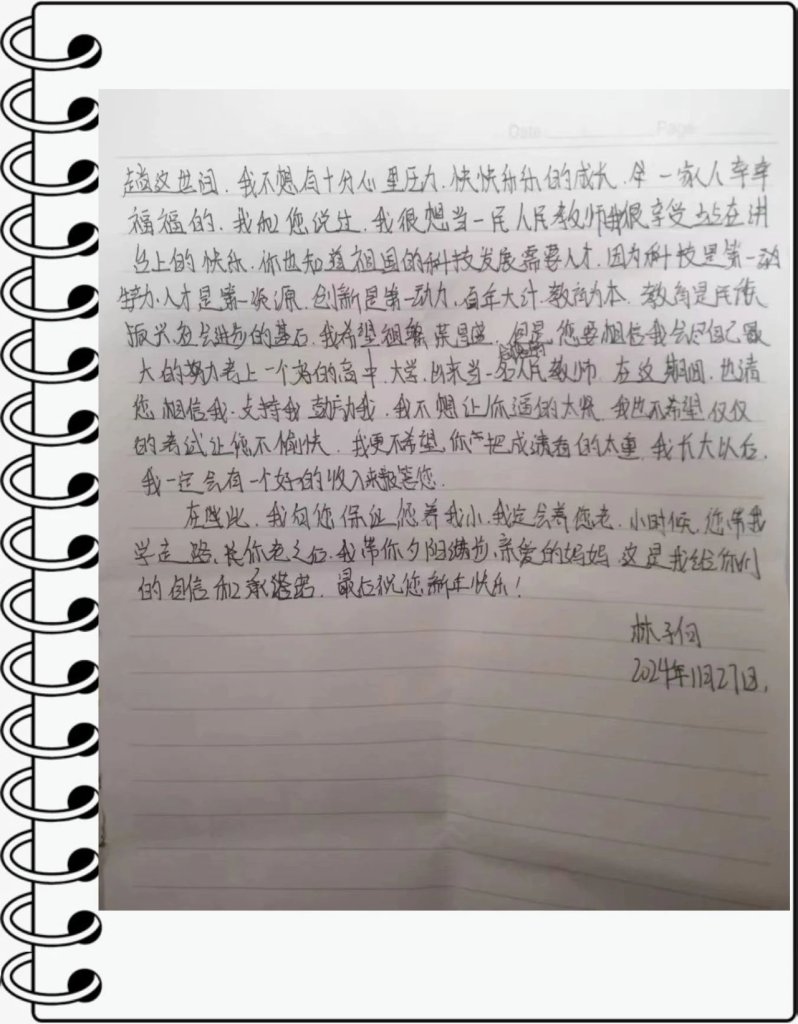 Date Page
趟这世间，我不想有十分心里压力，快快乐乐的成长，伴一家人幸幸
福福的，我和您说过，我很想当一民人民教师我很享受站在讲
台上的快乐，你也知道祖国的科技发展需要人才，因为科技是第一动
生产力，人才是第一资源，创新是第一动力，百年大计，教育为本，教育是民族
振兴，社会进步的基石，我希望祖繁荣昌盛，但是，您要相信我会尽自己最
大的努力考上一个好的高中，大学，出来当一名人民教师，在这期间，也请
您相信我，支持我，鼓励我，我不想让你逼的太紧，我也不希望仅仅
的考试让您不愉快，我更不希望你们把成绩看的太重，我长大以后，
我一定会有一个好的收入来报答您，
在此，我向您保证您养我小，我定会养您老，小时候，您带我
学走路，长你老之后，我带你夕阳漫步，亲爱的妈妈，这是我给你们
的自信和承诺，最后祝您新年快乐！
林子
2024年11月27日，